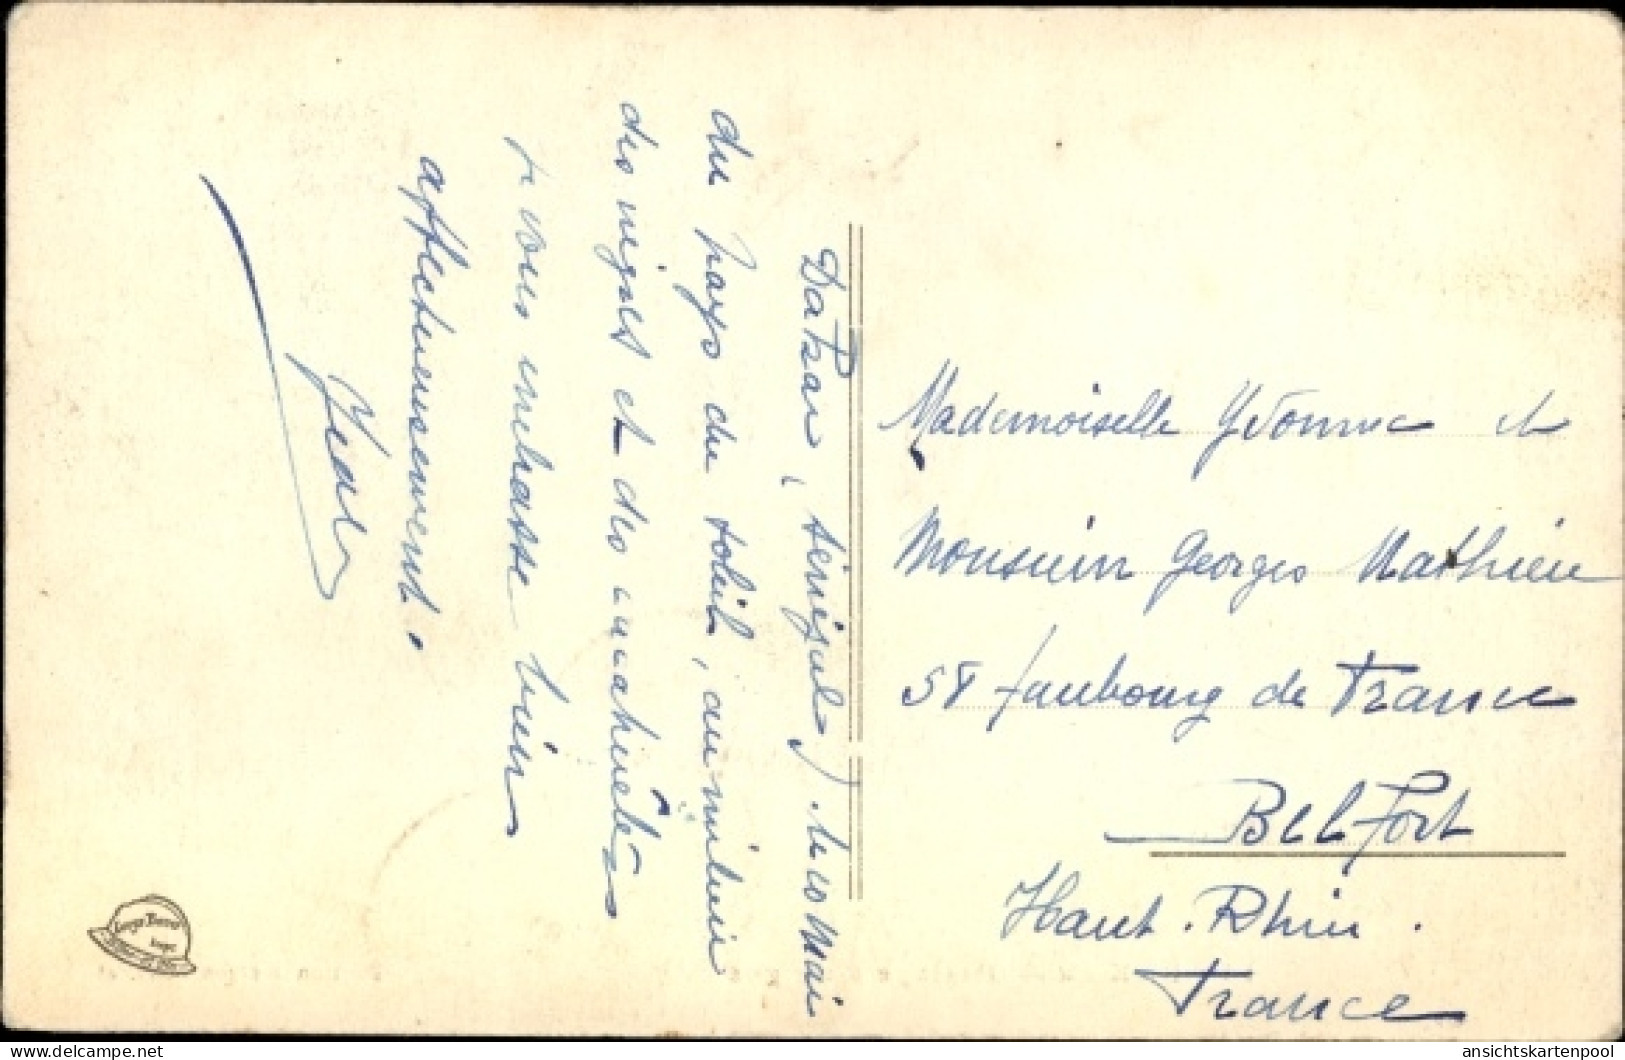 Dakar, (Sénégal) le 10 Mai
du pays du soleil, au milieu
des nègres et des
je vous embrasse bien
affectueusement.
Jean
Mademoiselle Yvonne et
Monsieur Georges Mathieu
58 faubourg de France
Belfort
Haut-Rhin.
France
ansichtskartenpool